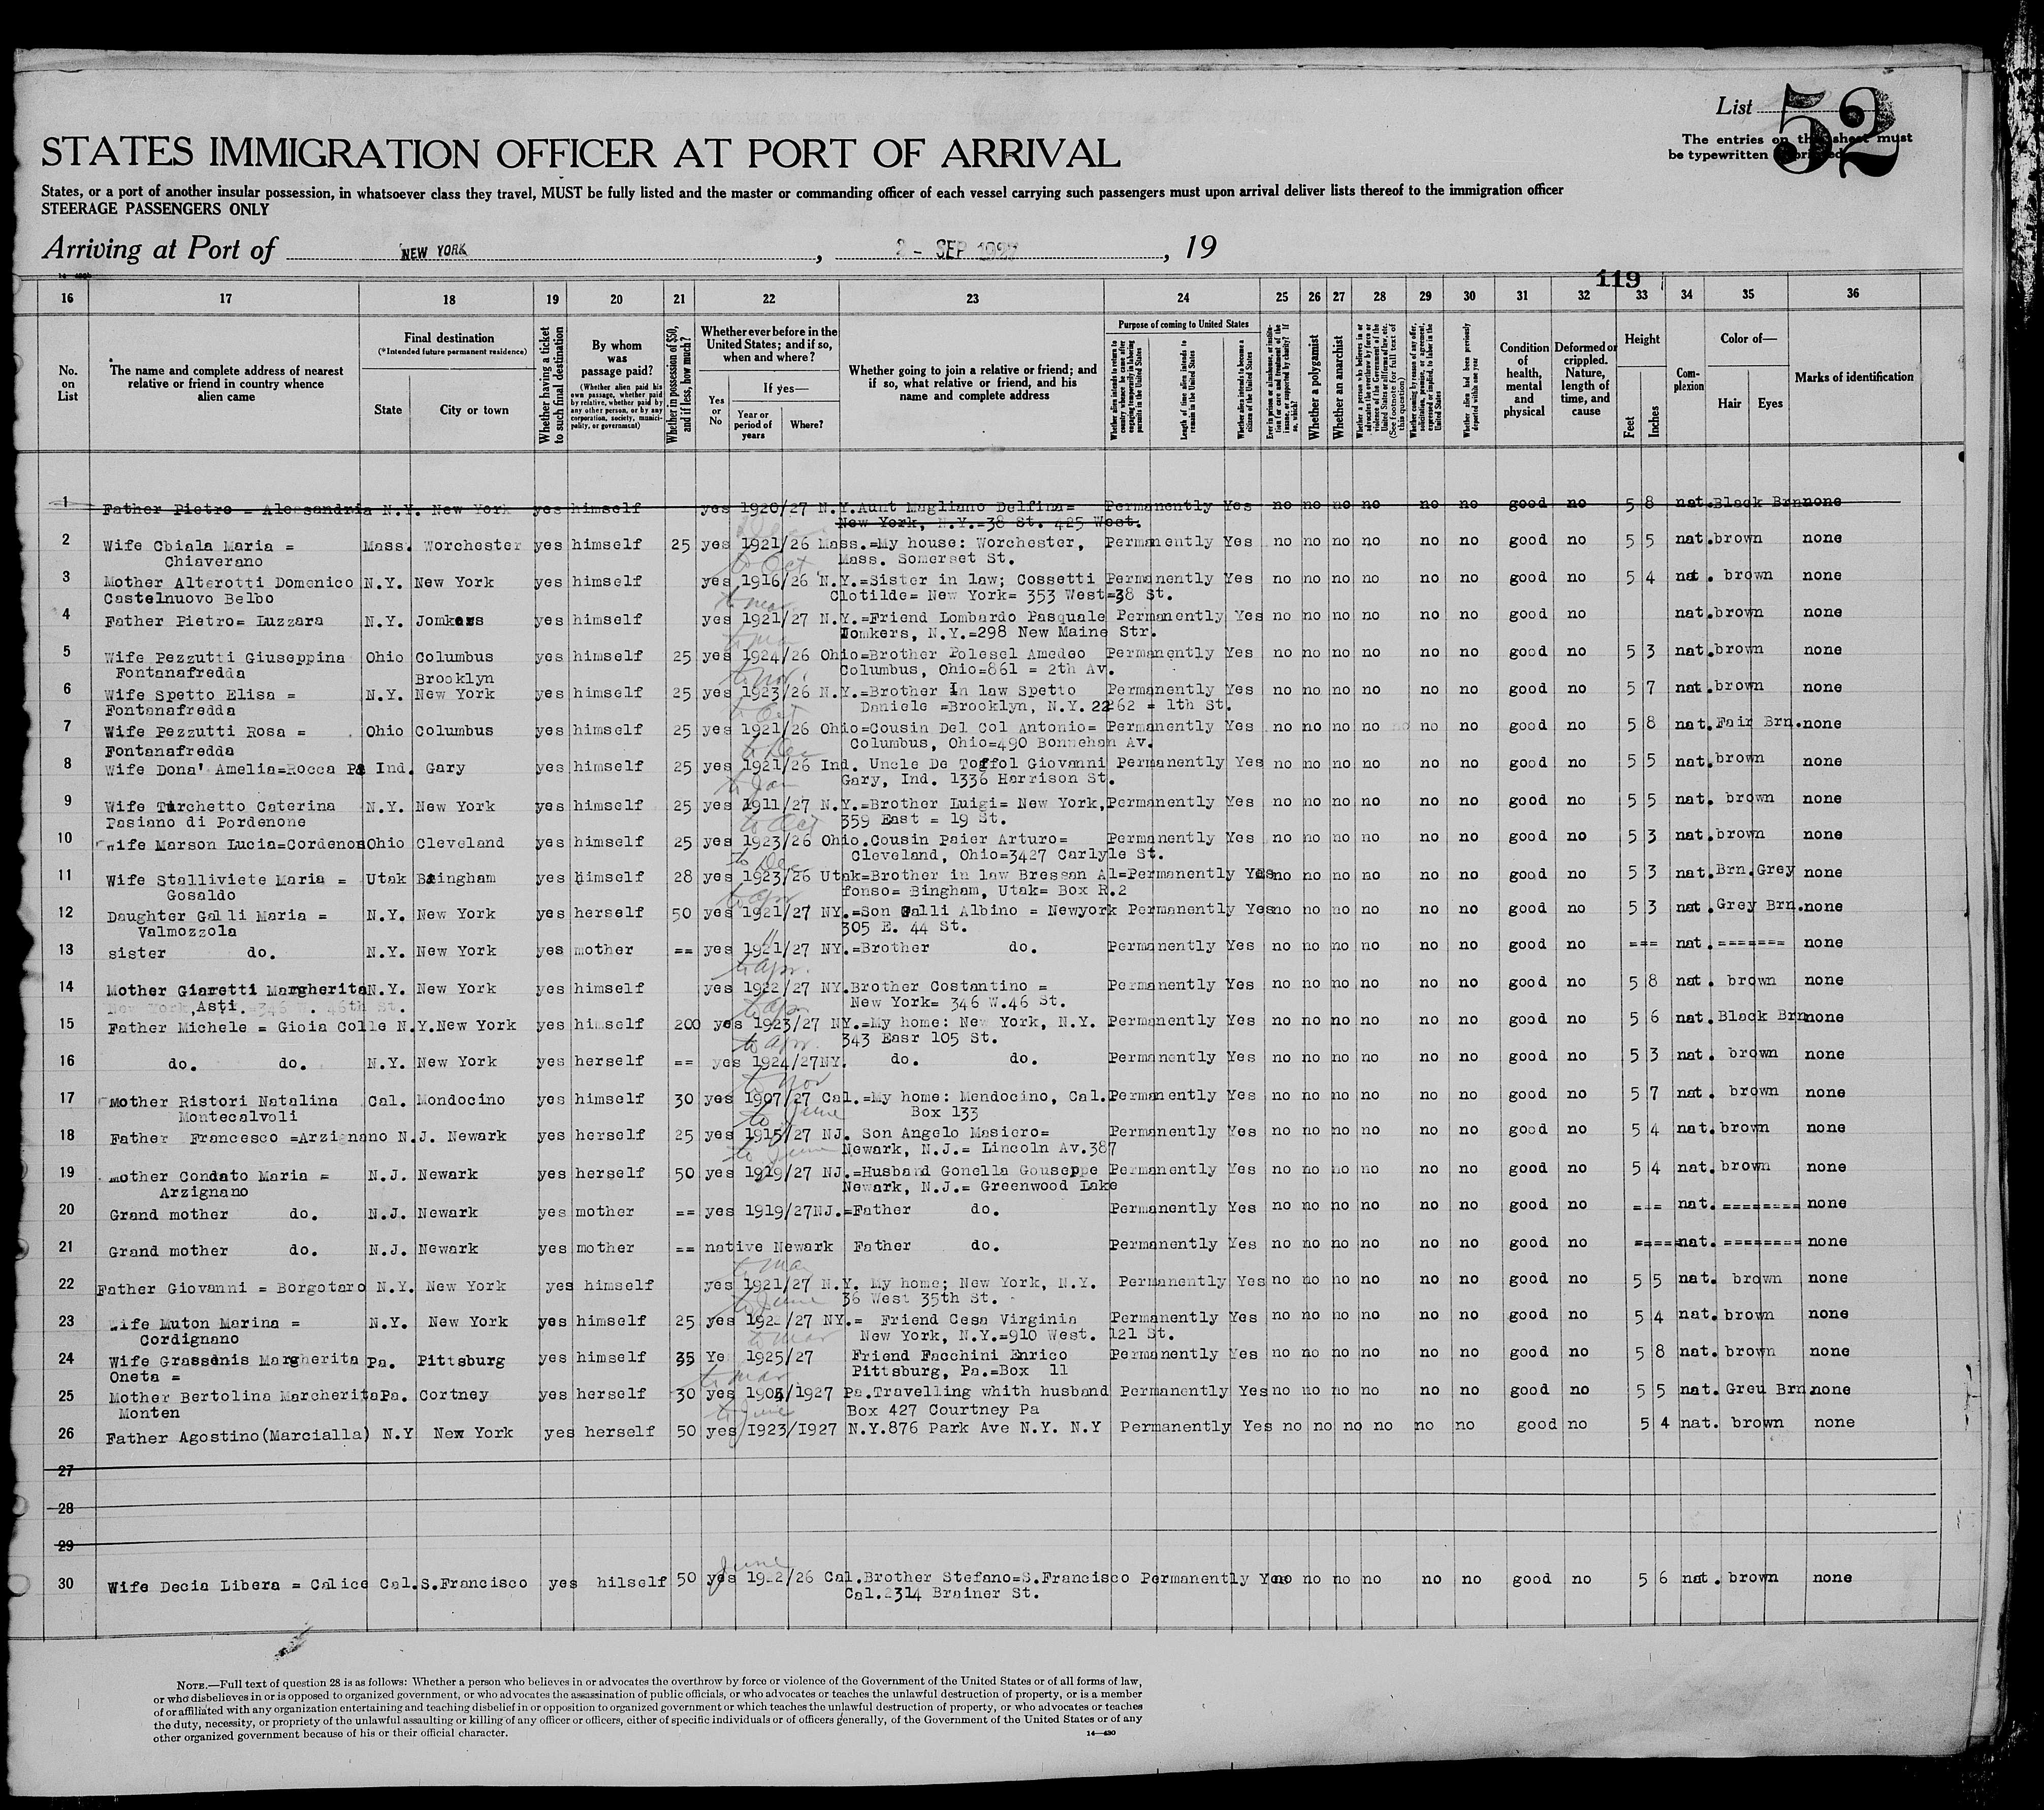 List 52
The entries on this sheet must
be typewritten or printed.
STATES IMMIGRATION OFFICER AT PORT OF ARRIVAL
States, or a port of another insular possession, in whatsoever class they travel, MUST be fully listed and the master or commanding officer of each vessel carrying such passengers must upon arrival deliver lists thereof to the immigration officer
STEERAGE PASSENGERS ONLY
Arriving at Port of NEW YORK, 2 - SEP 1927, 19
119
16 17 18 19 20 21 22 23 24 25 26 27 28 29 30 31 32 33 34 35 36
No. on List
The name and complete address of nearest relative or friend in country whence alien came
Final destination
(*Intended future permanent residence)
State
City or town
Whether having a ticket to such final destination
By whom was passage paid?
(Whether alien paid his own passage, whether paid by relative, whether paid by any other person, or by any corporation, society, municipality, or government)
Whether in possession of $50, and if less, how much?
Whether ever before in the United States; and if so, when and where?
Yes or No
If yes—
Year or period of years
Where?
Whether going to join a relative or friend; and if so, what relative or friend, and his name and complete address
Purpose of coming to United States
Whether alien intends to return to country whence he came after engaging temporarily in laboring pursuits in the United States
Length of time alien intends to remain in the United States
Whether alien intends to become a citizen of the United States
Ever in prison or almshouse, or institution for care and treatment of the insane, or supported by charity? If so, which?
Whether a polygamist
Whether an anarchist
Whether a person who believes in or advocates the overthrow by force or violence of the Government of the United States or all forms of law, etc. (See footnote for full text of this question)
Whether coming by reason of any offer, solicitation, promise, or agreement, expressed or implied, to labor in the United States
Whether alien had been previously deported within one year
Condition of health, mental and physical
Deformed or crippled. Nature, length of time, and cause
Height
Feet
Inches
Complexion
Color of—
Hair
Eyes
Marks of identification
1 Father Pietro = Alessandria N.Y. New York yes himself yes 1920/27 N.Y. Aunt Magliano Delfina= Permanently Yes no no no no no no good no 5 8 nat. Black Brn none
New York, N.Y.=38 St. 425 West.
2 Wife Cbiala Maria = Mass. Worchester yes himself 25 yes 1921/26 Mass.=My house: Worchester, Permanently Yes no no no no no no good no 5 5 nat. brown none
Chiaverano Mass. Somerset St.
to Oct
3 Mother Alterotti Domenico N.Y. New York yes himself yes 1916/26 N.Y.=Sister in law; Cossetti Permanently Yes no no no no no no good no 5 4 nat. brown none
Castelnuovo Belbo Clotilde= New York= 353 West=38 St.
to mar
4 Father Pietro= Luzzara N.Y. Jomkers yes himself yes 1921/27 N.Y.=Friend Lombardo Pasquale Permanently Yes no no no no no no good no nat. brown none
Jomkers, N.Y.=298 New Maine Str.
5 Wife Pezzutti Giuseppina Ohio Columbus yes himself 25 yes 1924/26 Ohio=Brother Polesel Amedeo Permanently Yes no no no no no no good no 5 3 nat. brown none
Fontanafredda Columbus, Ohio=861 = 2th Av.
to Nov.
Brooklyn
6 Wife Spetto Elisa = N.Y. New York yes himself 25 yes 1923/26 N.Y.=Brother In law Spetto Permanently Yes no no no no no no good no 5 7 nat. brown none
Fontanafredda Daniele =Brooklyn, N.Y. 22262 = 1th St.
to Oct
7 Wife Pezzutti Rosa = Ohio Columbus yes himself 25 yes 1921/26 Ohio=Cousin Del Col Antonio= Permanently Yes no no no no no no good no 5 8 nat. Fair Brn. none
Fontanafredda Columbus, Ohio=490 Bonnehan Av.
to Dec
8 Wife Dona' Amelia=Rocca Pa Ind. Gary yes himself 25 yes 1921/26 Ind. Uncle De Toffol Giovanni Permanently Yes no no no no no no good no 5 5 nat. brown none
Gary, Ind. 1336 Harrison St.
to Jan
9 Wife Turchetto Caterina N.Y. New York yes himself 25 yes 1911/27 N.Y.=Brother Luigi= New York, Permanently Yes no no no no no no good no 5 5 nat. brown none
Pasiano di Pordenone 359 East = 19 St.
to Oct
10 Wife Marson Lucia=Cordenons Ohio Cleveland yes himself 25 yes 1923/26 Ohio.Cousin Paier Arturo= Permanently Yes no no no no no no good no 5 3 nat. brown none
Cleveland, Ohio=3427 Carlyle St.
to Dec
11 Wife Stalliviete Maria = Utak Bingham yes himself 28 yes 1923/26 Utak=Brother in law Bressan Al=Permanently Yes no no no no no no good no 5 3 nat. Brn. Grey none
Gosaldo fonso= Bingham, Utak= Box R.2
to apr
12 Daughter Galli Maria = N.Y. New York yes herself 50 yes 1921/27 NY.=Son Galli Albino = Newyork Permanently Yes no no no no no no good no 5 3 nat. Grey Brn. none
Valmozzola 305 E. 44 St.
13 sister do. N.Y. New York yes mother == yes 1921/27 NY.=Brother do. Permanently Yes no no no no no no good no === nat. ======= none
to apr.
14 Mother Giaretti Margherita N.Y. New York yes himself yes 1922/27 NY.Brother Costantino = Permanently Yes no no no no no no good no 5 8 nat. brown none
Asti. New York= 346 W.46 St.
to apr
15 Father Michele = Gioia Colle N.Y. New York yes himself 200 yes 1923/27 NY.=My home: New York, N.Y. Permanently Yes no no no no no no good no 5 6 nat. Black Brn none
343 Easr 105 St.
to apr.
16 do. do. N.Y. New York yes herself == yes 1924/27NY. do. do. Permanently Yes no no no no no no good no 5 3 nat. brown none
to Nov
17 Mother Ristori Natalina Cal. Mondocino yes himself 30 yes 1907/27 Cal.=My home: Mendocino, Cal. Permanently Yes no no no no no no good no 5 7 nat. brown none
Montecalvoli Box 133
to June
18 Father Francesco =Arzignano N.J. Newark yes herself 25 yes 1915/27 NJ. Son Angelo Masiero= Permanently Yes no no no no no no good no 5 4 nat. brown none
Newark, N.J.= Lincoln Av.387
to June
19 Mother Condato Maria = N.J. Newark yes herself 50 yes 1919/27 NJ.=Husband Gonella Gouseppe Permanently Yes no no no no no no good no 5 4 nat. brown none
Arzignano Newark, N.J.= Greenwood Lake
20 Grand mother do. N.J. Newark yes mother == yes 1919/27NJ.=Father do. Permanently Yes no no no no no no good no === nat. ======== none
21 Grand mother do. N.J. Newark yes mother == native Newark Father do. Permanently Yes no no no no no no good no ==== nat. ======== none
to May
22 Father Giovanni = Borgotaro N.Y. New York yes himself yes 1921/27 N.Y. My home; New York, N.Y. Permanently Yes no no no no no no good no 5 5 nat. brown none
36 West 35th St.
to June
23 Wife Muton Marina = N.Y. New York yes himself 25 yes 192 /27 NY.= Friend Cesa Virginia Permanently Yes no no no no no no good no 5 4 nat. brown none
Cordignano New York, N.Y.=910 West. 121 St.
to mar
24 Wife Grassenis Margherita Pa. Pittsburg yes himself 35 Ye 1925/27 Friend Facchini Enrico Permanently Yes no no no no no no good no 5 8 nat. brown none
Oneta = Pittsburg, Pa.=Box 11
to mar
25 Mother Bertolina Marcherita Pa. Cortney yes herself 30 yes 1904/1927 Pa.Travelling whith husband Permanently Yes no no no no no no good no 5 5 nat. Greu Brn. none
Monten Box 427 Courtney Pa
to June
26 Father Agostino(Marcialla) N.Y New York yes herself 50 yes 1923/1927 N.Y.876 Park Ave N.Y. N.Y Permanently Yes no no no no no no good no 5 4 nat. brown none
27
28
29
June
30 Wife Decia Libera = Calice Cal. S.Francisco yes hilself 50 yes 1922/26 Cal.Brother Stefano=S.Francisco Permanently Yes no no no no no no good no 5 6 nat. brown none
Cal.2314 Brainer St.
NOTE.—Full text of question 28 is as follows: Whether a person who believes in or advocates the overthrow by force or violence of the Government of the United States or of all forms of law,
or who disbelieves in or is opposed to organized government, or who advocates the assassination of public officials, or who advocates or teaches the unlawful destruction of property, or is a member
of or affiliated with any organization entertaining and teaching disbelief in or opposition to organized government or which teaches the unlawful destruction of property, or who advocates or teaches
the duty, necessity, or propriety of the unlawful assaulting or killing of any officer or officers, either of specific individuals or of officers generally, of the Government of the United States or of any
other organized government because of his or their official character.
14—430